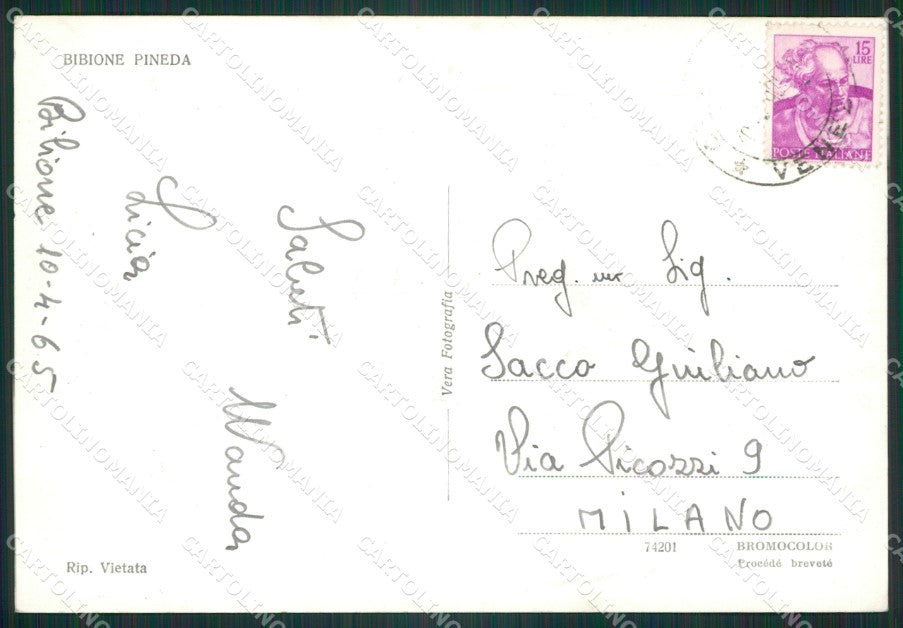 BIBIONE PINEDA
Bibione 10-4-65
Saluti
Licia
Wanda
Rip. Vietata
Vera Fotografia
15
LIRE
POSTE ITALIANE
VENEZ
Preg. mr Sig.
Sacco Giuliano
Via Picozzi 9
MILANO
74201
BROMOCOLOR
Procédé breveté
CARTOLINOMANIA